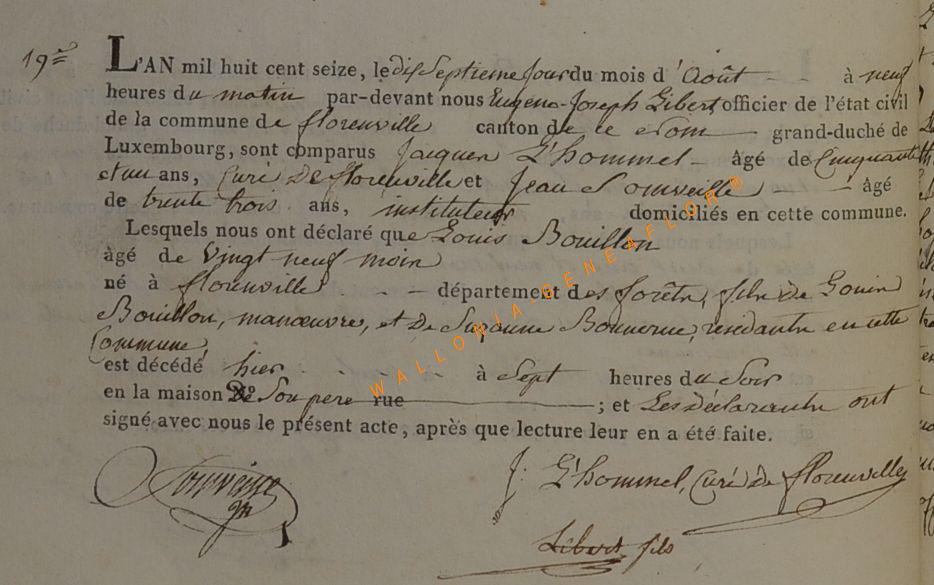 19me
L'AN mil huit cent seize, le dix Septieme Jour du mois d'Août - - à neuf
heures du matin par-devant nous Eugene-Joseph Libert, officier de l'état civil
de la commune de florenville canton de ce nom — grand-duché de
Luxembourg, sont comparus Jacques L'hommel — âgé de Cinquante
et un ans, Curé De florenville et Jean — âgé
de trente trois ans, instituteur domiciliés en cette commune.
Lesquels nous ont déclaré que Louis Bouillon
âgé de Vingt neuf mois
né à florenville . - - département des forêts, fils de Louis
Bouillon, manœuvre, et de Suzanne residants en cette
Commune,
est décédé hier . - . - - à Sept heures du Soir
en la maison De Son pere rue — ; et Les déclarants ont
signé avec nous le présent acte, après que lecture leur en a été faite.
J. L'hommel, Curé de florenville
Libert fils
WALLONIA GENEAFLOR®